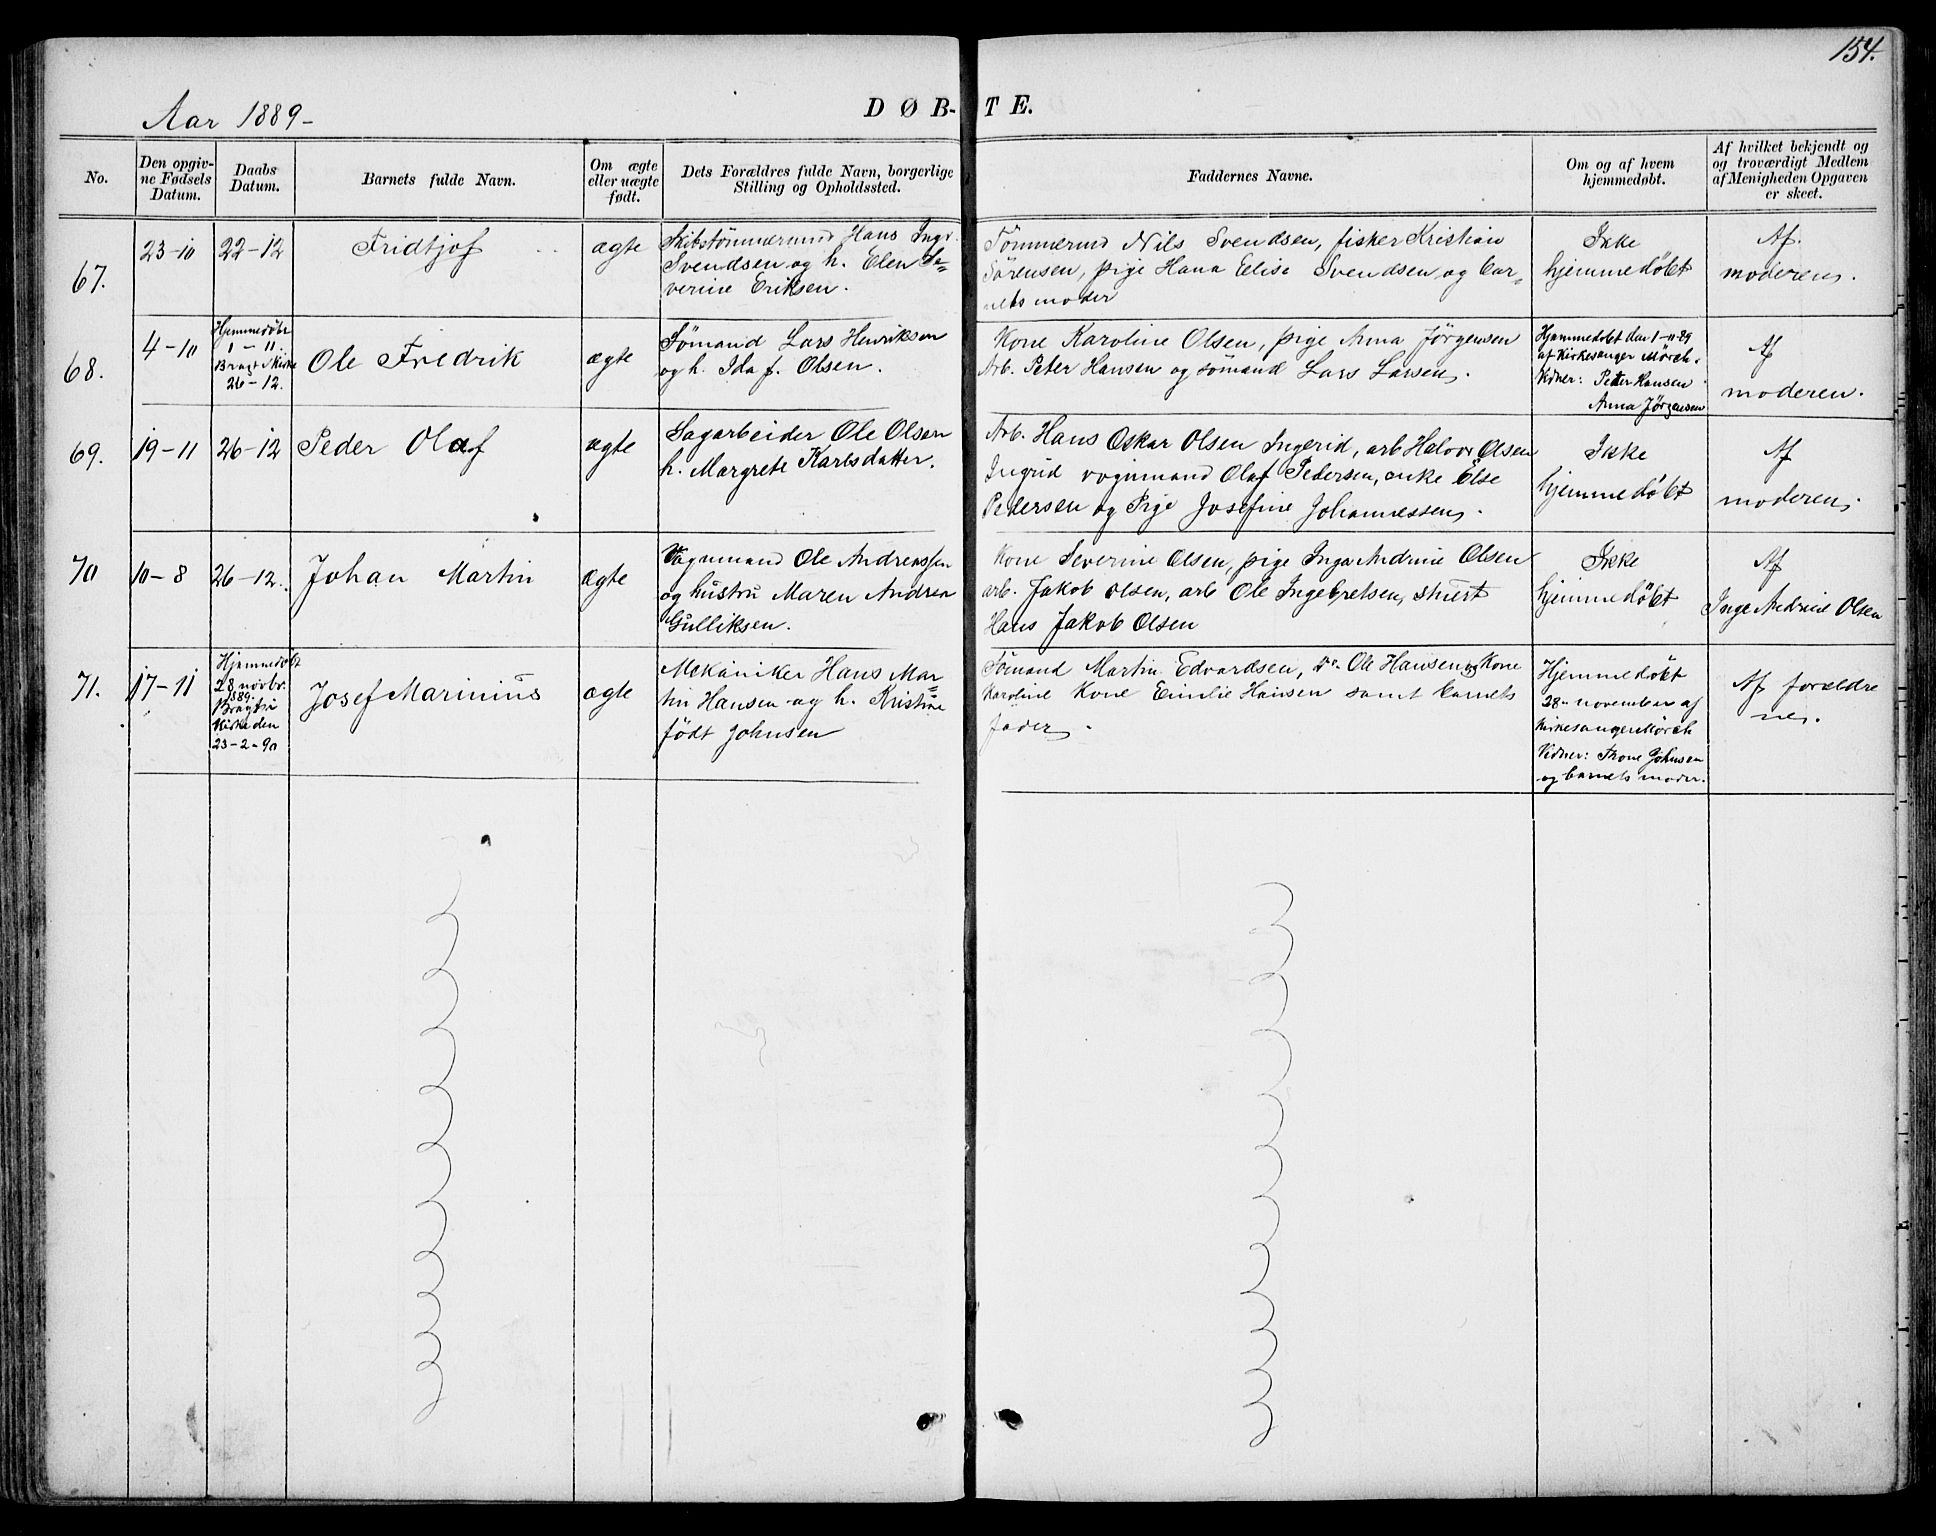 154.
Aar 1889-
DØB-TE.
No.
Den opgiv-
ne Fødsels
Datum.
Daabs
Datum.
Barnets fulde Navn.
Om ægte
eller uægte
født.
Dets Forældres fulde Navn, borgerlige
Stilling og Opholdssted.
Faddernes Navne.
Om og af hvem
hjemmedøbt.
Af hvilket bekjendt og
og troværdigt Medlem
af Menigheden Opgaven
er skeet.
67.
23-10
22-12
Fridtjof
ægte
Skibstømmermnd Hans Ingv.
Svendsen og h. Elen Se=
verine Eriksen.
Tømmermd Nils Svendsen, fisker Kristian
Sørensen, pige Hana Elise Svendsen og bar-
nets moder
Ikke
hjemmedøbt
Af
moderen.
68.
4-10
Hjemmedøbt
1-11.
Bragt i Kirke
26-12.
Ole Fredrik
ægte
Sømand Lars Henriksen
og h. Ida f. Olsen.
Kone Karoline Olsen, pige Anna Jørgensen
Arb. Peter Hansen og sømand Lars Larsen.
Hjemmedøbt den 1-11-89
af Kirkesanger Mørch.
Vidner: Peder Hansen
Anna Jørgensen
Af
moderen.
69.
19-11
26-12
Peder Olaf
ægte
Sagarbeider Ole Olsen
h. Margrete Karlsdatter.
Arb. Hans Oskar Olsen Ingerid, arb Halvor Olsen
Ingrid vognmand Olaf Pedersen, enke Else
Pedersen og Pige Josefine Johannessen.
Ikke
hjemmedøbt
Af
moderen.
70
10-8
26-12.
Johan Martin
ægte
Vognmand Ole Andreassen
og hustru Maren Andrea
Gulliksen.
Kone Severine Olsen, pige Inga Andrine Olsen
arb. Jakob Olsen, arb Ole Ingebretsen, stuert
Hans Jakob Olsen
Ikke
hjemmedøbt
Af
Inge Andrine Olsen
71.
17-11
Hjemmedøbt
28 novbr.
1889.
Bragt i
Kirke den
23-2-90
Josef Marinius
ægte
Mekaniker Hans Mar=
tin Hansen og h. Kristine
født Johnsen
Sømand Martin Edvardsen, Do Ole Hansen og Kone
Karoline Kone Emilie Hansen samt barnets
fader.
Hjemmedøbt
28-november af
Kirkesanger Mørch
Vidner: Trone Johnsen
og barnets moder.
Af forældre
ne.